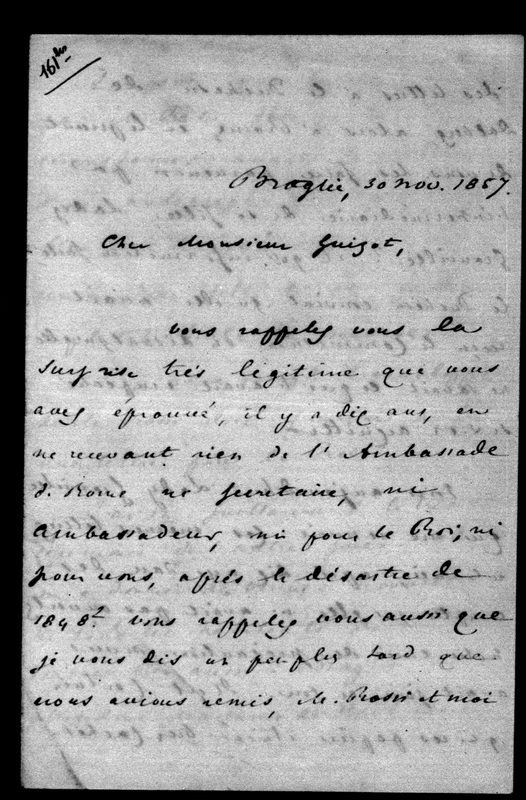 161bis
Broglie, 30 nov. 1857.
Cher Monsieur Guizot,
vous rappelez vous la
surprise très légitime que vous
avez éprouvé, il y a dix ans, en
ne recevant rien de l'Ambassade
d. Rome ne secretaire, ni
Ambassadeur, ni pour le Roi, ni
pour vous, après le désastre de
1848? vous rappelez vous aussi que
je vous dis un peu plus tard que
nous avions remis, M. Rossi et moi